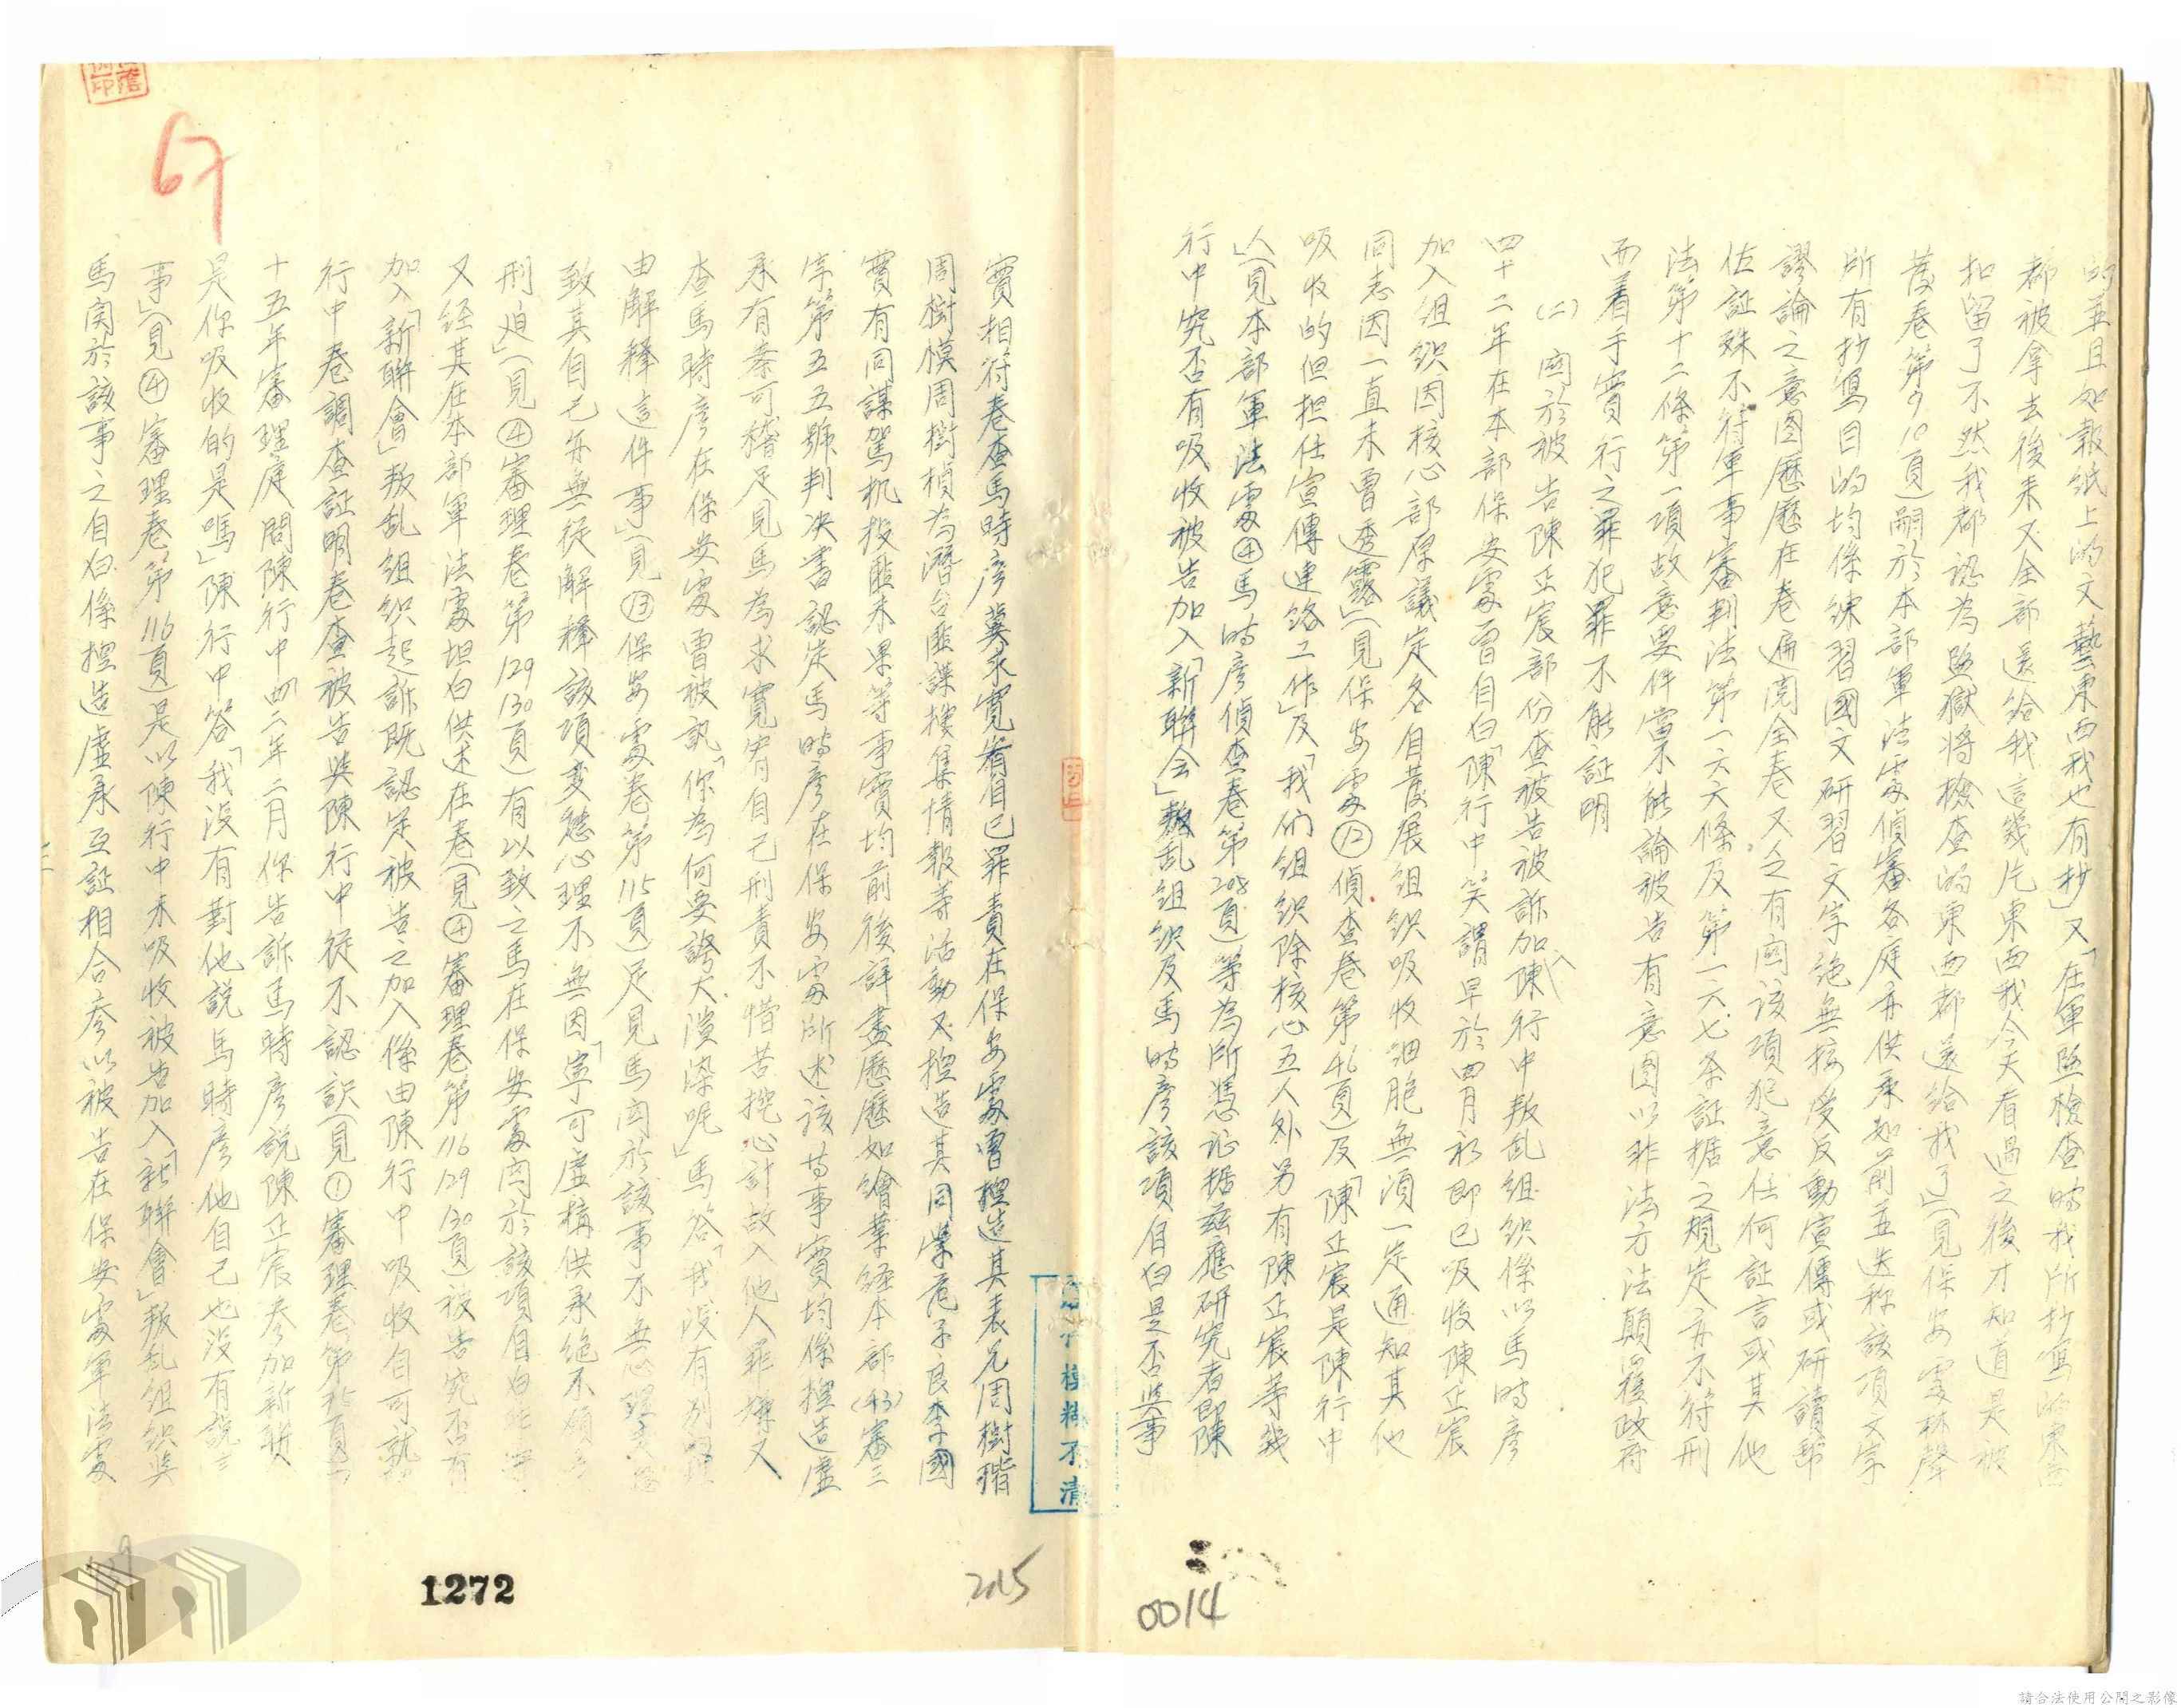 的並且如報紙上的文藝東西我也有抄」又「在軍監檢查時我所抄寫的東西
都被拿去後來又全部還給我這幾片東西我今天看過之後才知道是被
扣留了不然我都認為監獄將檢查的東西都還給我了」(見保安處林聲
發卷第9 10頁)嗣於本部軍法處偵審各庭亦供承如前並迭称該項文字
所有抄寫目的均係練習國文研習文字絕無接受反動宣傳或研讀
謬論之意图歷歷在卷遍閱全卷又乏有関該項犯意任何証言或其他
佐証殊不符軍事審判法第一六六條及第一六七条証據之規定亦不符刑
法第十二條第一項故意要件當不能論被告有意图以非法方法顛覆政府
而着手實行之罪犯罪不能証明
(二)関於被告陳正宸部份查被告被訴加入陳行中叛乱組织係以馬時彥
四十二年在本部保安處曾自白「陳行中笑謂早於四月初即已吸收陳正宸
加入組织因核心部原議定各自發展組织吸收細胞無須一定通知其他
同志因一直未曾透露」(見保安處⑫偵查卷第46頁)及「陳正宸是陳行中
吸收的但担任宣傳連絡工作」及「我们組织除核心五人外另有陳正宸等幾
人」(見本部軍法處④馬時彥偵查卷第208頁)等為所憑証据茲應研究者即陳
行中究否有吸收被告加入「新聯会」叛乱組织及馬時彥該項自白是否與事
實相符卷查馬時彥冀求寬宥自己罪責在保安處曾捏造其表兄周樹瑎
周樹模周樹楨為潛台匪諜搜集情報等活動又捏造其同學危子良李國
寶有同謀駕机投匪未果等事實均前後詳盡歷歷如繪業経本部(43)審三
字第五五號判决書認定馬時彥在保安處所述該等事實均係捏造虛
承有案可稽足見馬為求寬宥自己刑責不惜苦挖心計故入他人罪嫌又
查馬時彥在保安處曾被訊「你為何要誇大渲染呢」馬答「我没有别的理
由解释這件事」(見⑬保安處卷第115頁)足見馬関於該事不無心理
致其自己亦無從解釋該項变態心理不無因「寧可虛構供承絕不
刑迫」(見④審理卷第129 130頁)有以致之馬在保安處関於該項自白
又经其在本部軍法處坦白供述在卷(見④審理卷第116 129 130頁)被告究否有
加入「新聯會」叛乱組织起訴既認定被告之加入係由陳行中吸收自可就
行中卷調查証明卷查被告與陳行中從不認識(見①審理卷第
十五年審理庭問陳行中「四二年二月你告訴馬時彥說陳正宸参加新聯
是你吸收的是嗎」陳行中答「我没有對他説馬時彥他自己也没有說
事」(見④審理卷第116頁)是以陳行中未吸收被告加入「新聯會」叛乱組织
馬関於該事之自白係捏造虛承互証相合参以被告在保安處軍法處
67
1272
2015
0014
模糊不清
請合法使用公開之影像